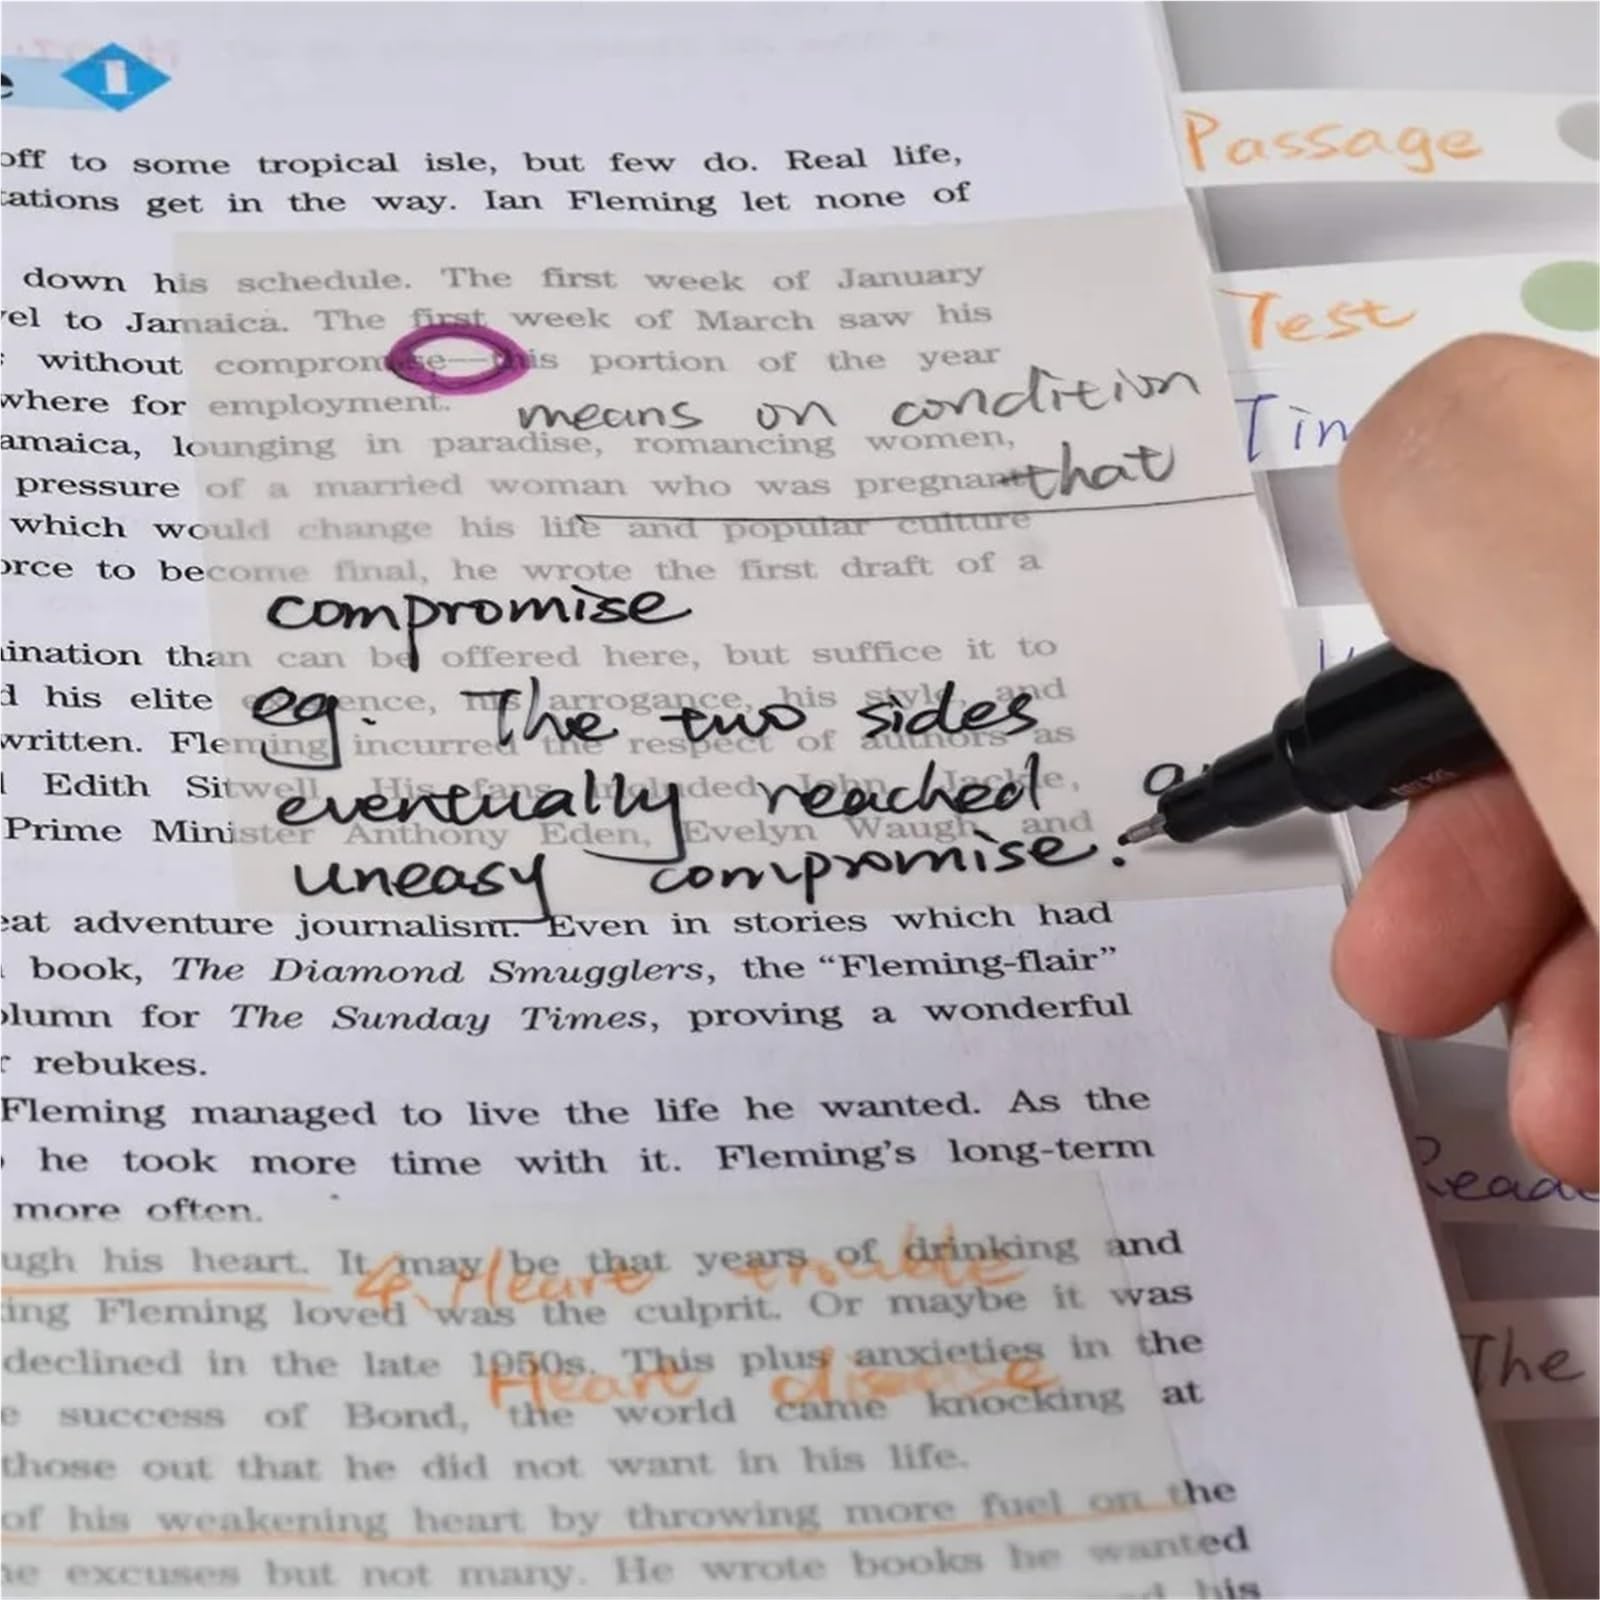 1
off to some tropical isle, but few do. Real life,
get in the way. Ian Fleming let none of
down his schedule. The first week of January
to Jamaica. The first week of March saw his
without compromise—this portion of the year
where for employment.
means on condition
that
lounging in paradise, romancing women,
pressure of a married woman who was pregnant
which would change his life and popular culture
to become final, he wrote the first draft of a
compromise
than can be offered here, but suffice it to
his elite arrogance, his style, and
eg. The two sides
written. Fleming incurred the respect of authors as
Edith Sitwell. His fans included John
eventually reached
Prime Minister Anthony Eden, Evelyn Waugh, and
uneasy compromise.
adventure journalism. Even in stories which had
book, The Diamond Smugglers, the “Fleming-flair”
for The Sunday Times, proving a wonderful
rebukes.
Fleming managed to live the life he wanted. As the
he took more time with it. Fleming's long-term
more often.
his heart. It may be that years of drinking and
4. Heart trouble
Fleming loved was the culprit. Or maybe it was
declined in the late 1950s. This plus anxieties in the
Heart disease
success of Bond, the world came knocking at
those out that he did not want in his life.
of his weakening heart by throwing more fuel on the
excuses but not many. He wrote books he wanted
his
Passage
Test
The